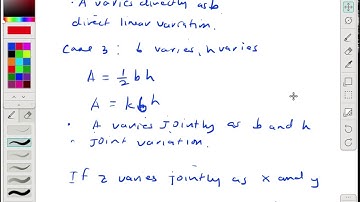 · A varies directly as b
direct linear variation.
Case 3: b varies, h varies
A = 1/2 b h
A = k b h
· A varies jointly as b and h
· joint variation.
If z varies jointly as x and y